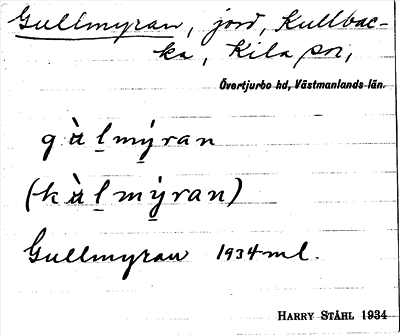 Gullmyran, jord, Kullbac-
ka, Kila sn,
Övertjurbo hd, Västmanlands län.
gὰl̠mý̠ran
(kὰl̠mỳ̠ran)
Gullmyran 1934 ml.
HARRY STÅHL 1934